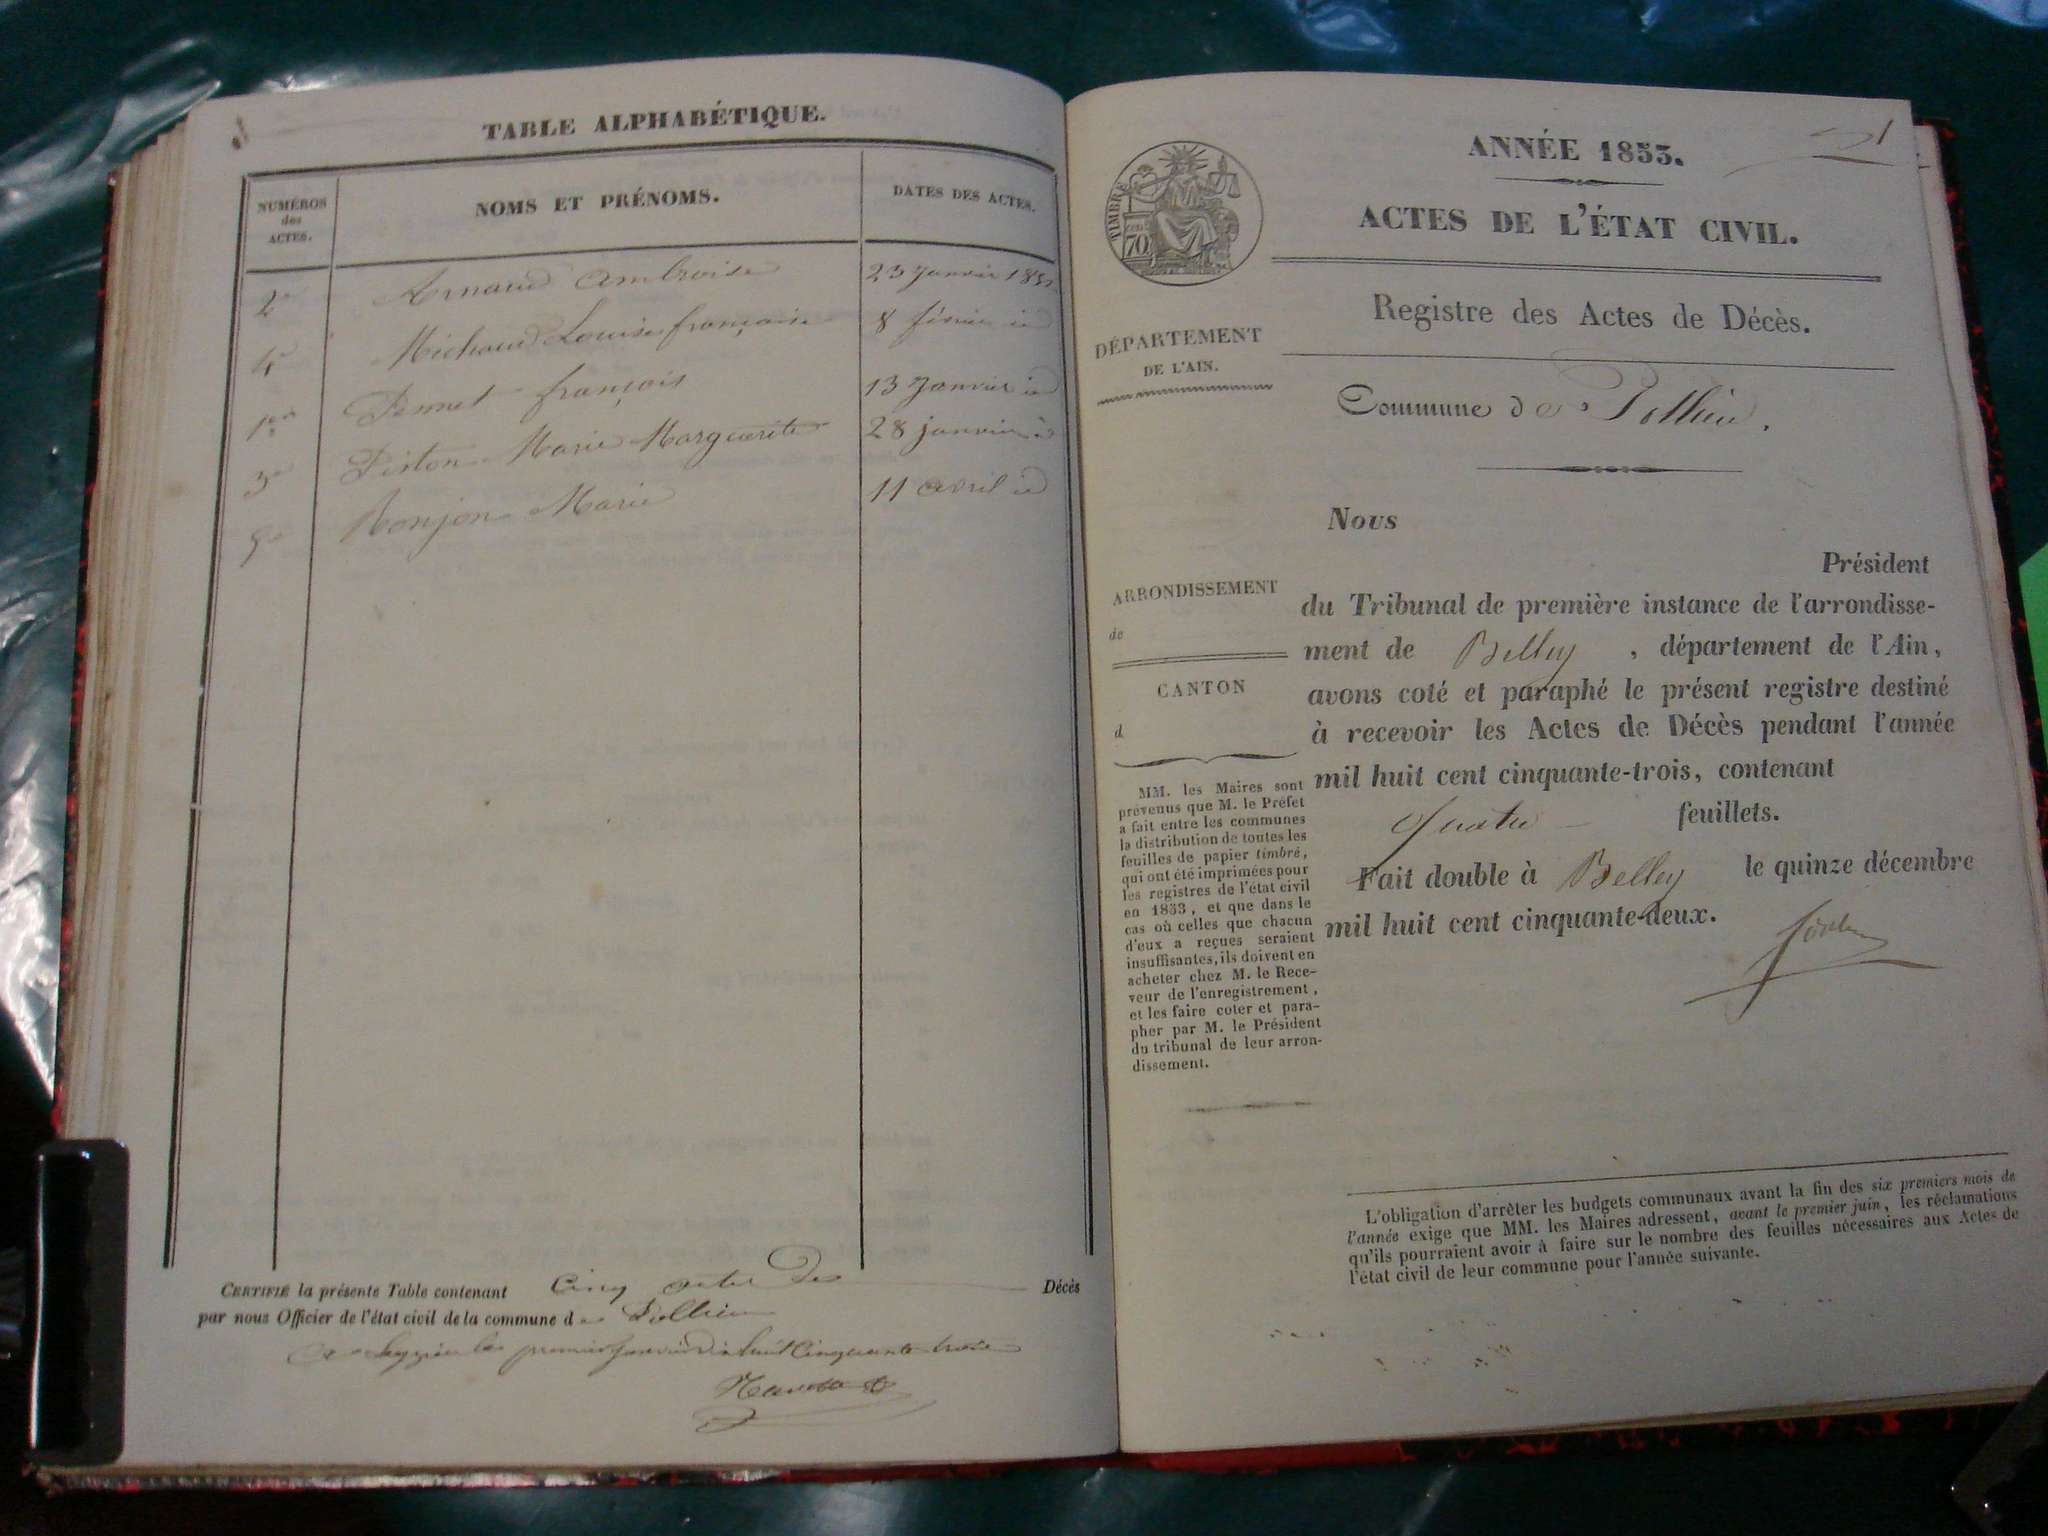 TABLE ALPHABÉTIQUE.
NUMÉROS des ACTES.
NOMS ET PRÉNOMS.
DATES DES ACTES.
2e Arnaud Ambroise 23 Janvier 185
4e Michaud Louise françoise 8 février id
1er Pernet françois 13 Janvier id
3e Piston Marie Marguerite 28 janvier id
5e Ronjon Marie 11 avril id
CERTIFIÉ la présente Table contenant Cinq actes De Décès
par nous Officier de l'état civil de la commune de Pollieu
premier Janvier huit Cinquante trois
1
ANNÉE 1853.
ACTES DE L'ÉTAT CIVIL.
TIMBRE
70
Registre des Actes de Décès.
DÉPARTEMENT
DE L'AIN.
Commune de Pollieu.
Nous
Président
ARRONDISSEMENT
de
CANTON
d
du Tribunal de première instance de l'arrondisse-
ment de Belley, département de l'Ain,
avons coté et paraphé le présent registre destiné
à recevoir les Actes de Décès pendant l'année
mil huit cent cinquante-trois, contenant
quatre feuillets.
Fait double à Belley le quinze décembre
mil huit cent cinquante-deux.
MM. les Maires sont
prévenus que M. le Préfet
a fait entre les communes
la distribution de toutes les
feuilles de papier timbré,
qui ont été imprimées pour
les registres de l'état civil
en 1853, et que dans le
cas où celles que chacun
d'eux a reçues seraient
insuffisantes, ils doivent en
acheter chez M. le Rece-
veur de l'enregistrement,
et les faire coter et para-
pher par M. le Président
du tribunal de leur arron-
dissement.
L'obligation d'arrêter les budgets communaux avant la fin des six premiers mois de
l'année exige que MM. les Maires adressent, avant le premier juin, les réclamations
qu'ils pourraient avoir à faire sur le nombre des feuilles nécessaires aux Actes de
l'état civil de leur commune pour l'année suivante.